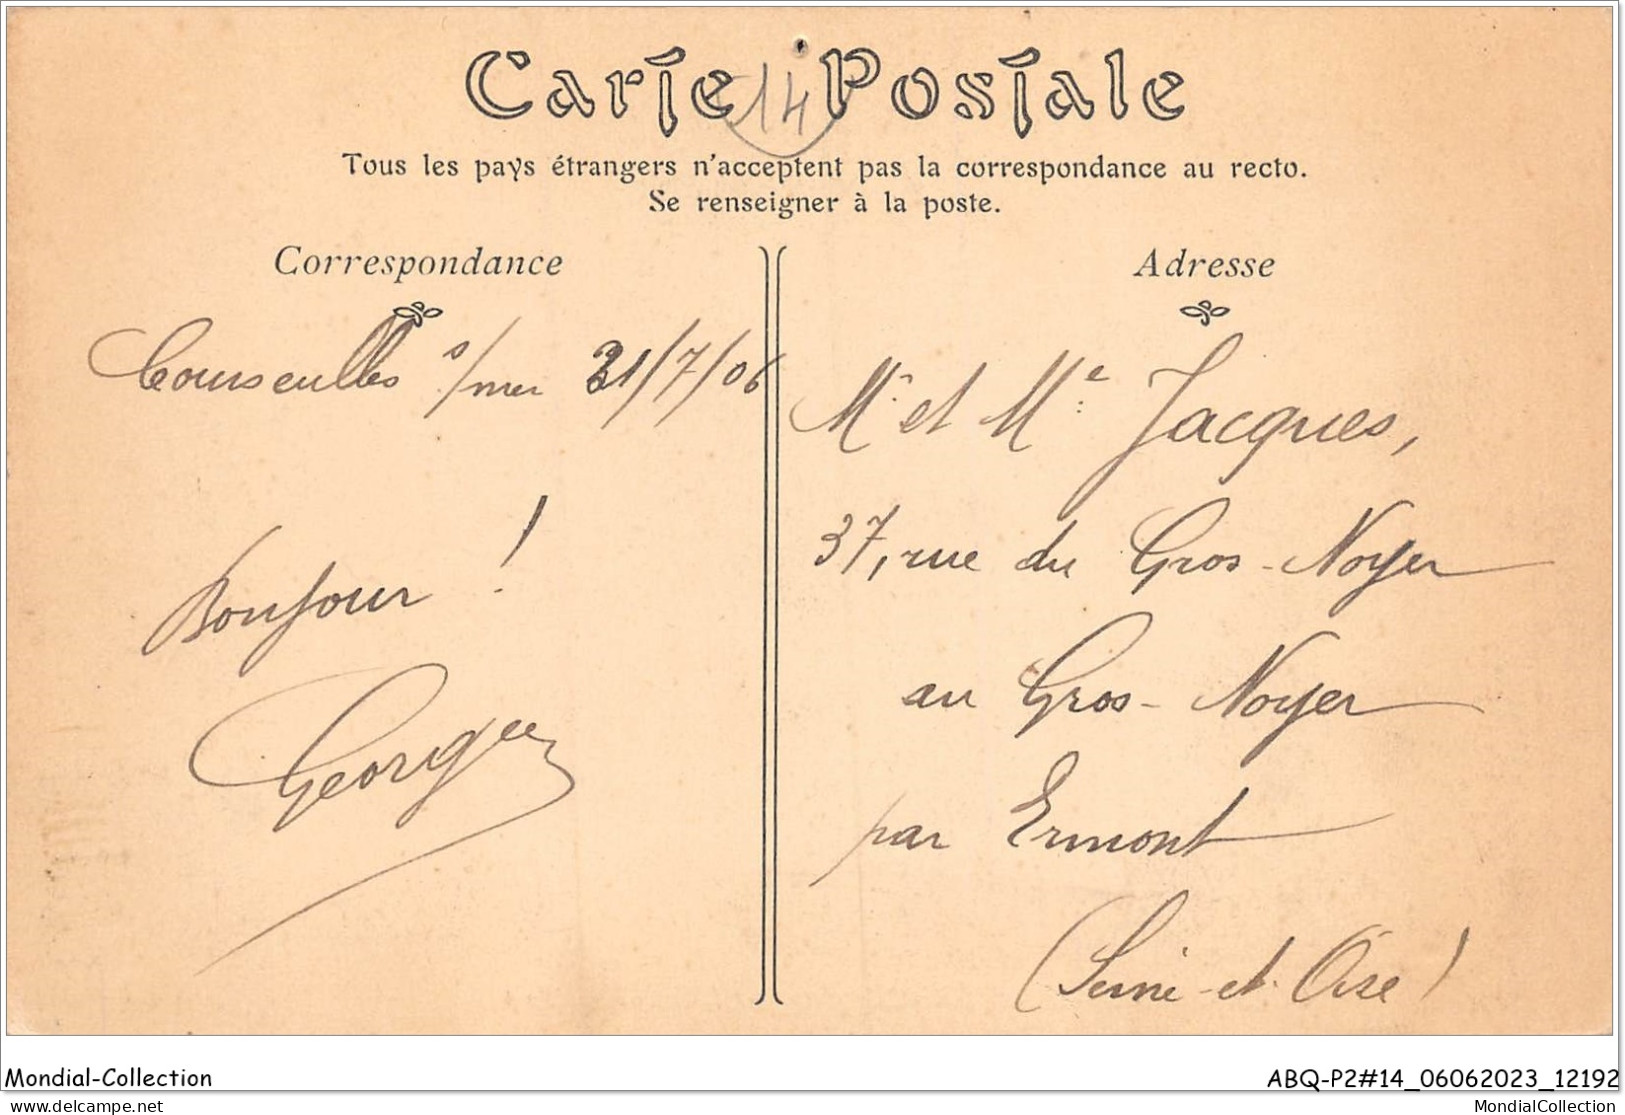 Carte Postale
14
Tous les pays étrangers n'acceptent pas la correspondance au recto.
Se renseigner à la poste.
Correspondance
Courseulles s/mer 21/7/06
Bonjour !
Georges
Adresse
Mr et Me Jacques,
37, rue du Gros-Noyer
au Gros-Noyer
par Ermont
(Seine-et-Oise)
Mondial-Collection
ABQ-P2#14_06062023_12192
Mondial-Collection.com
MondialCollection